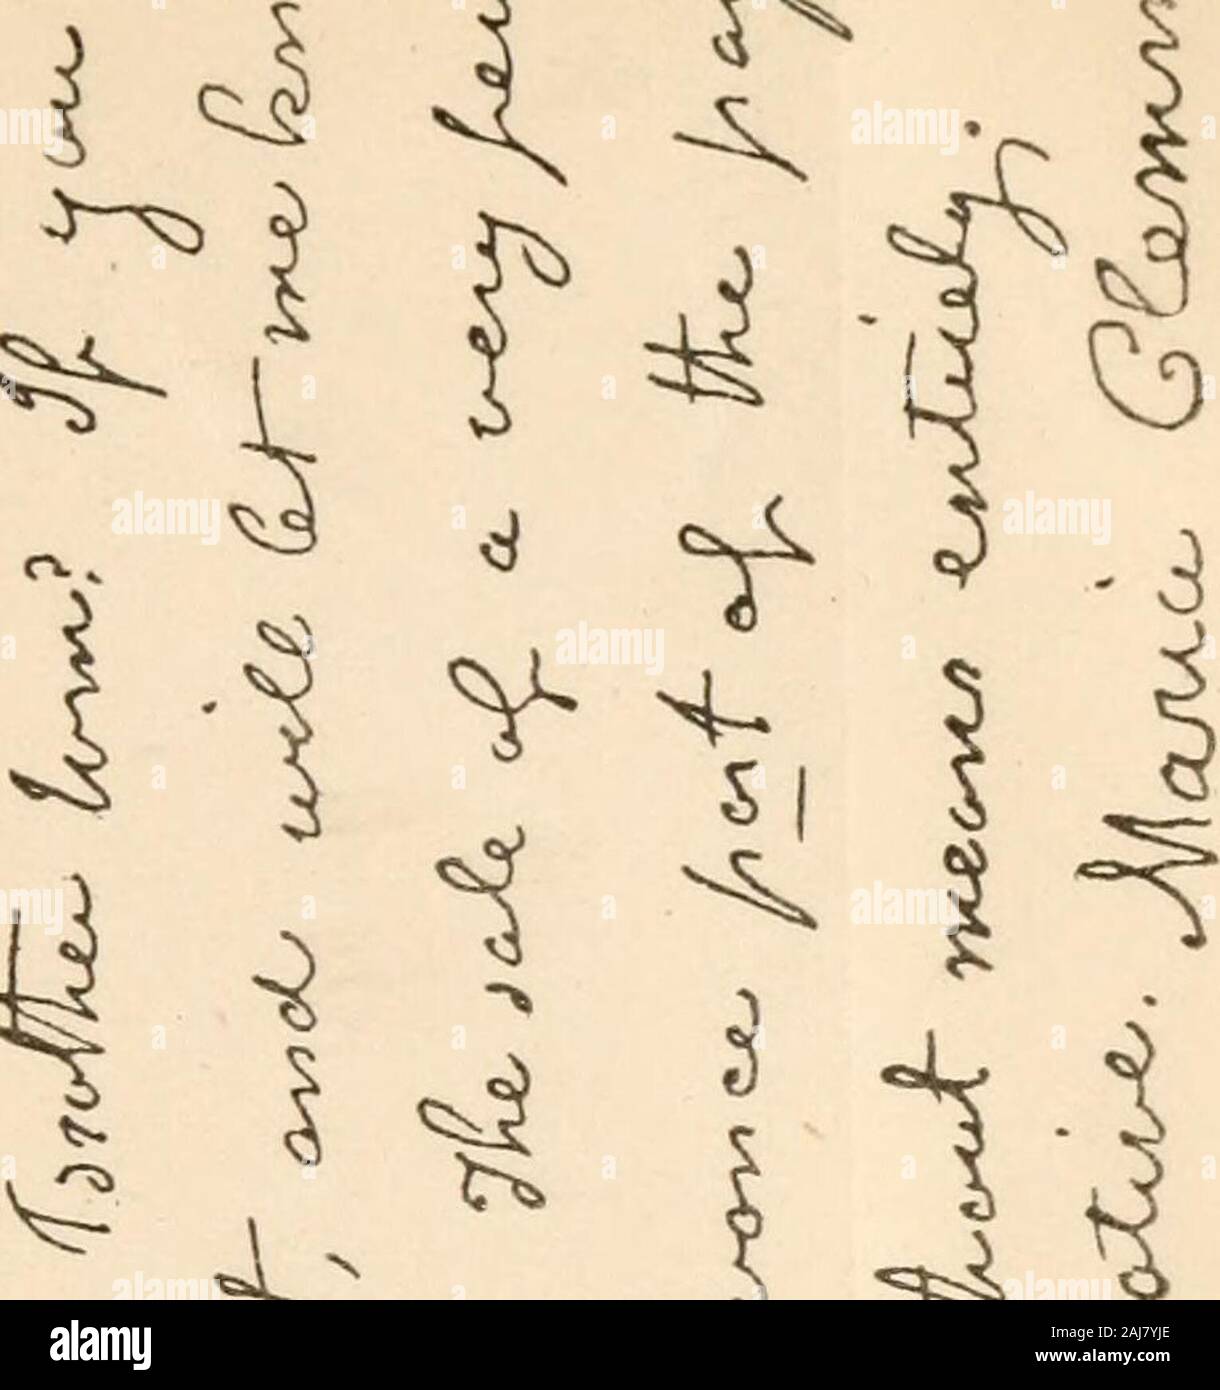 another form? If you
t, and will let me kn
The sale of a very few
vance part of the pay
thout means entirely;
ative. Marie Clemm
alamy
Image ID: 2AJ7YJE
www.alamy.com